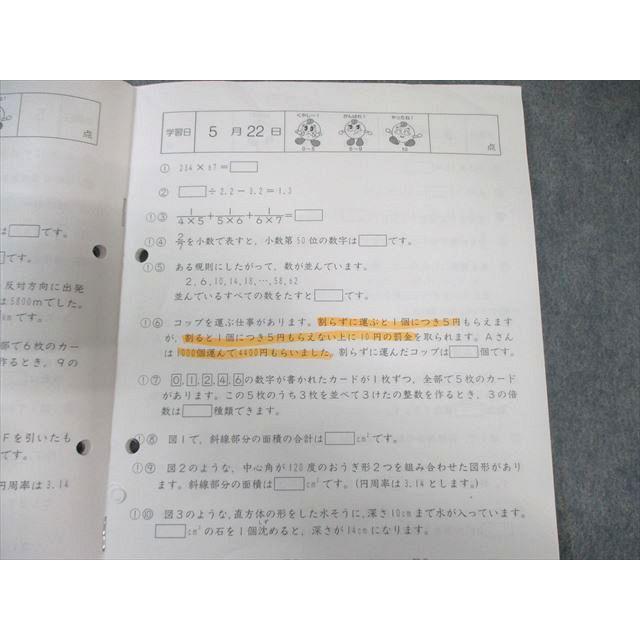 点
は□です。
□です。
反対方向に出発
は5800mでした。
kmです。
部で6枚のカー
作るとき，9の
Fを引いたも
です。
円周率は3.14
学習日 5月22日 くやしー! がんばれ! やったね! 0~5 6~9 10 点
① 234×67=□
② □÷2.2-0.2=1.3
①③ 1/4×5+1/5×6+1/6×7=□
①④ 2/7を小数で表すと，小数第50位の数字は□です。
①⑤ ある規則にしたがって，数が並んでいます。
2，6，10，14，18，…，58，62
並んでいるすべての数をたすと□です。
①⑥ コップを運ぶ仕事があります。割らずに運ぶと1個につき5円もらえます
が，割ると1個につき5円もらえない上に10円の罰金を取られます。Aさん
は1000個運んで4400円もらいました。割らずに運んだコップは□個です。
①⑦ 0，1，2，4，6の数字が書かれたカードが1枚ずつ，全部で5枚のカード
があります。この5枚のうち3枚を並べて3けたの整数を作るとき，3の倍
数は□種類できます。
①⑧ 図1で，斜線部分の面積の合計は□cm²です。
①⑨ 図2のような，中心角が120度のおうぎ形2つを組み合わせた図形があり
ます。斜線部分の面積は□cm²です。(円周率は3.14とします。)
①⑩ 図3のような，直方体の形をした水そうに，深さ10cmまで水が入っています。
□cm³の石を1個沈めると，深さが14cmになります。